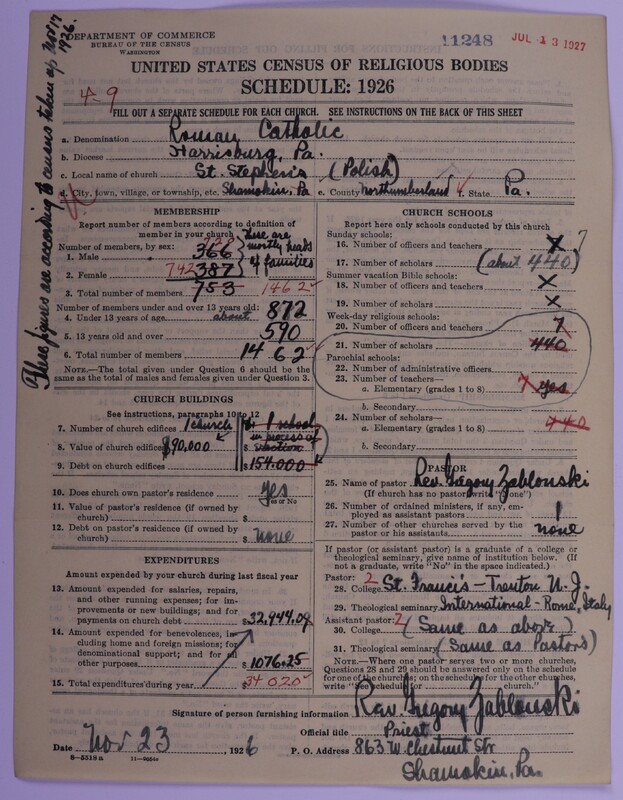 DEPARTMENT OF COMMERCE
BUREAU OF THE CENSUS
WASHINGTON
11248
JUL 13 1927
These figures are according to census taken up Nov 17 1926.
UNITED STATES CENSUS OF RELIGIOUS BODIES
SCHEDULE: 1926
4-9
FILL OUT A SEPARATE SCHEDULE FOR EACH CHURCH. SEE INSTRUCTIONS ON THE BACK OF THIS SHEET
a. Denomination Roman Catholic
b. Diocese Harrisburg, Pa.
c. Local name of church St. Stephen's (Polish)
d. City, town, village, or township, etc. Shamokin, Pa e. County Northumberland f. State Pa.
MEMBERSHIP
Report number of members according to definition of member in your church
Number of members, by sex:
1. Male 366
2. Female 742 387
these are mostly heads of families
3. Total number of members 753 1462
Number of members under and over 13 years old:
4. Under 13 years of age about 872
5. 13 years old and over 590
6. Total number of members 1462
NOTE.—The total given under Question 6 should be the same as the total of males and females given under Question 3.
CHURCH BUILDINGS
See instructions, paragraphs 10 to 12
7. Number of church edifices 1 church 1 school in process of
8. Value of church edifices $90,000
9. Debt on church edifices $154.000
10. Does church own pastor's residence yes
Yes or No
11. Value of pastor's residence (if owned by church) $
12. Debt on pastor's residence (if owned by church) $ none
EXPENDITURES
Amount expended by your church during last fiscal year
13. Amount expended for salaries, repairs, and other running expenses; for improvements or new buildings; and for payments on church debt $32,944.09
14. Amount expended for benevolences, including home and foreign missions; for denominational support; and for all other purposes $1076.25
15. Total expenditures during year $34 020
CHURCH SCHOOLS
Report here only schools conducted by this church
Sunday schools:
16. Number of officers and teachers X 7
17. Number of scholars (about 440)
Summer vacation Bible schools:
18. Number of officers and teachers X
19. Number of scholars X
Week-day religious schools:
20. Number of officers and teachers 7
21. Number of scholars 440
Parochial schools:
22. Number of administrative officers
23. Number of teachers—
a. Elementary (grades 1 to 8) 7 yes
b. Secondary
24. Number of scholars—
a. Elementary (grades 1 to 8) 440
b. Secondary
PASTOR
25. Name of pastor Rev. Gregory Zablonski
(If church has no pastor write "none")
26. Number of ordained ministers, if any, employed as assistant pastors 1
27. Number of other churches served by the pastor or his assistants none
If pastor (or assistant pastor) is a graduate of a college or theological seminary, give name of institution below. (If not a graduate, write "No" in the space indicated.)
Pastor: 2
28. College St. Francis - Trenton N.J.
29. Theological seminary International - Rome, Italy
Assistant pastor: 2
30. College (Same as above)
31. Theological seminary (Same as Pastor's)
NOTE.—Where one pastor serves two or more churches, Questions 28 and 29 should be answered only on the schedule for one of the churches; on the schedule for the other churches, write "See schedule for church."
Signature of person furnishing information Rev. Gregory Zablonski
Official title Priest
Date Nov 23, 1926 P. O. Address 863 W. Chestnut Str
Shamokin, Pa.
8-5518 a